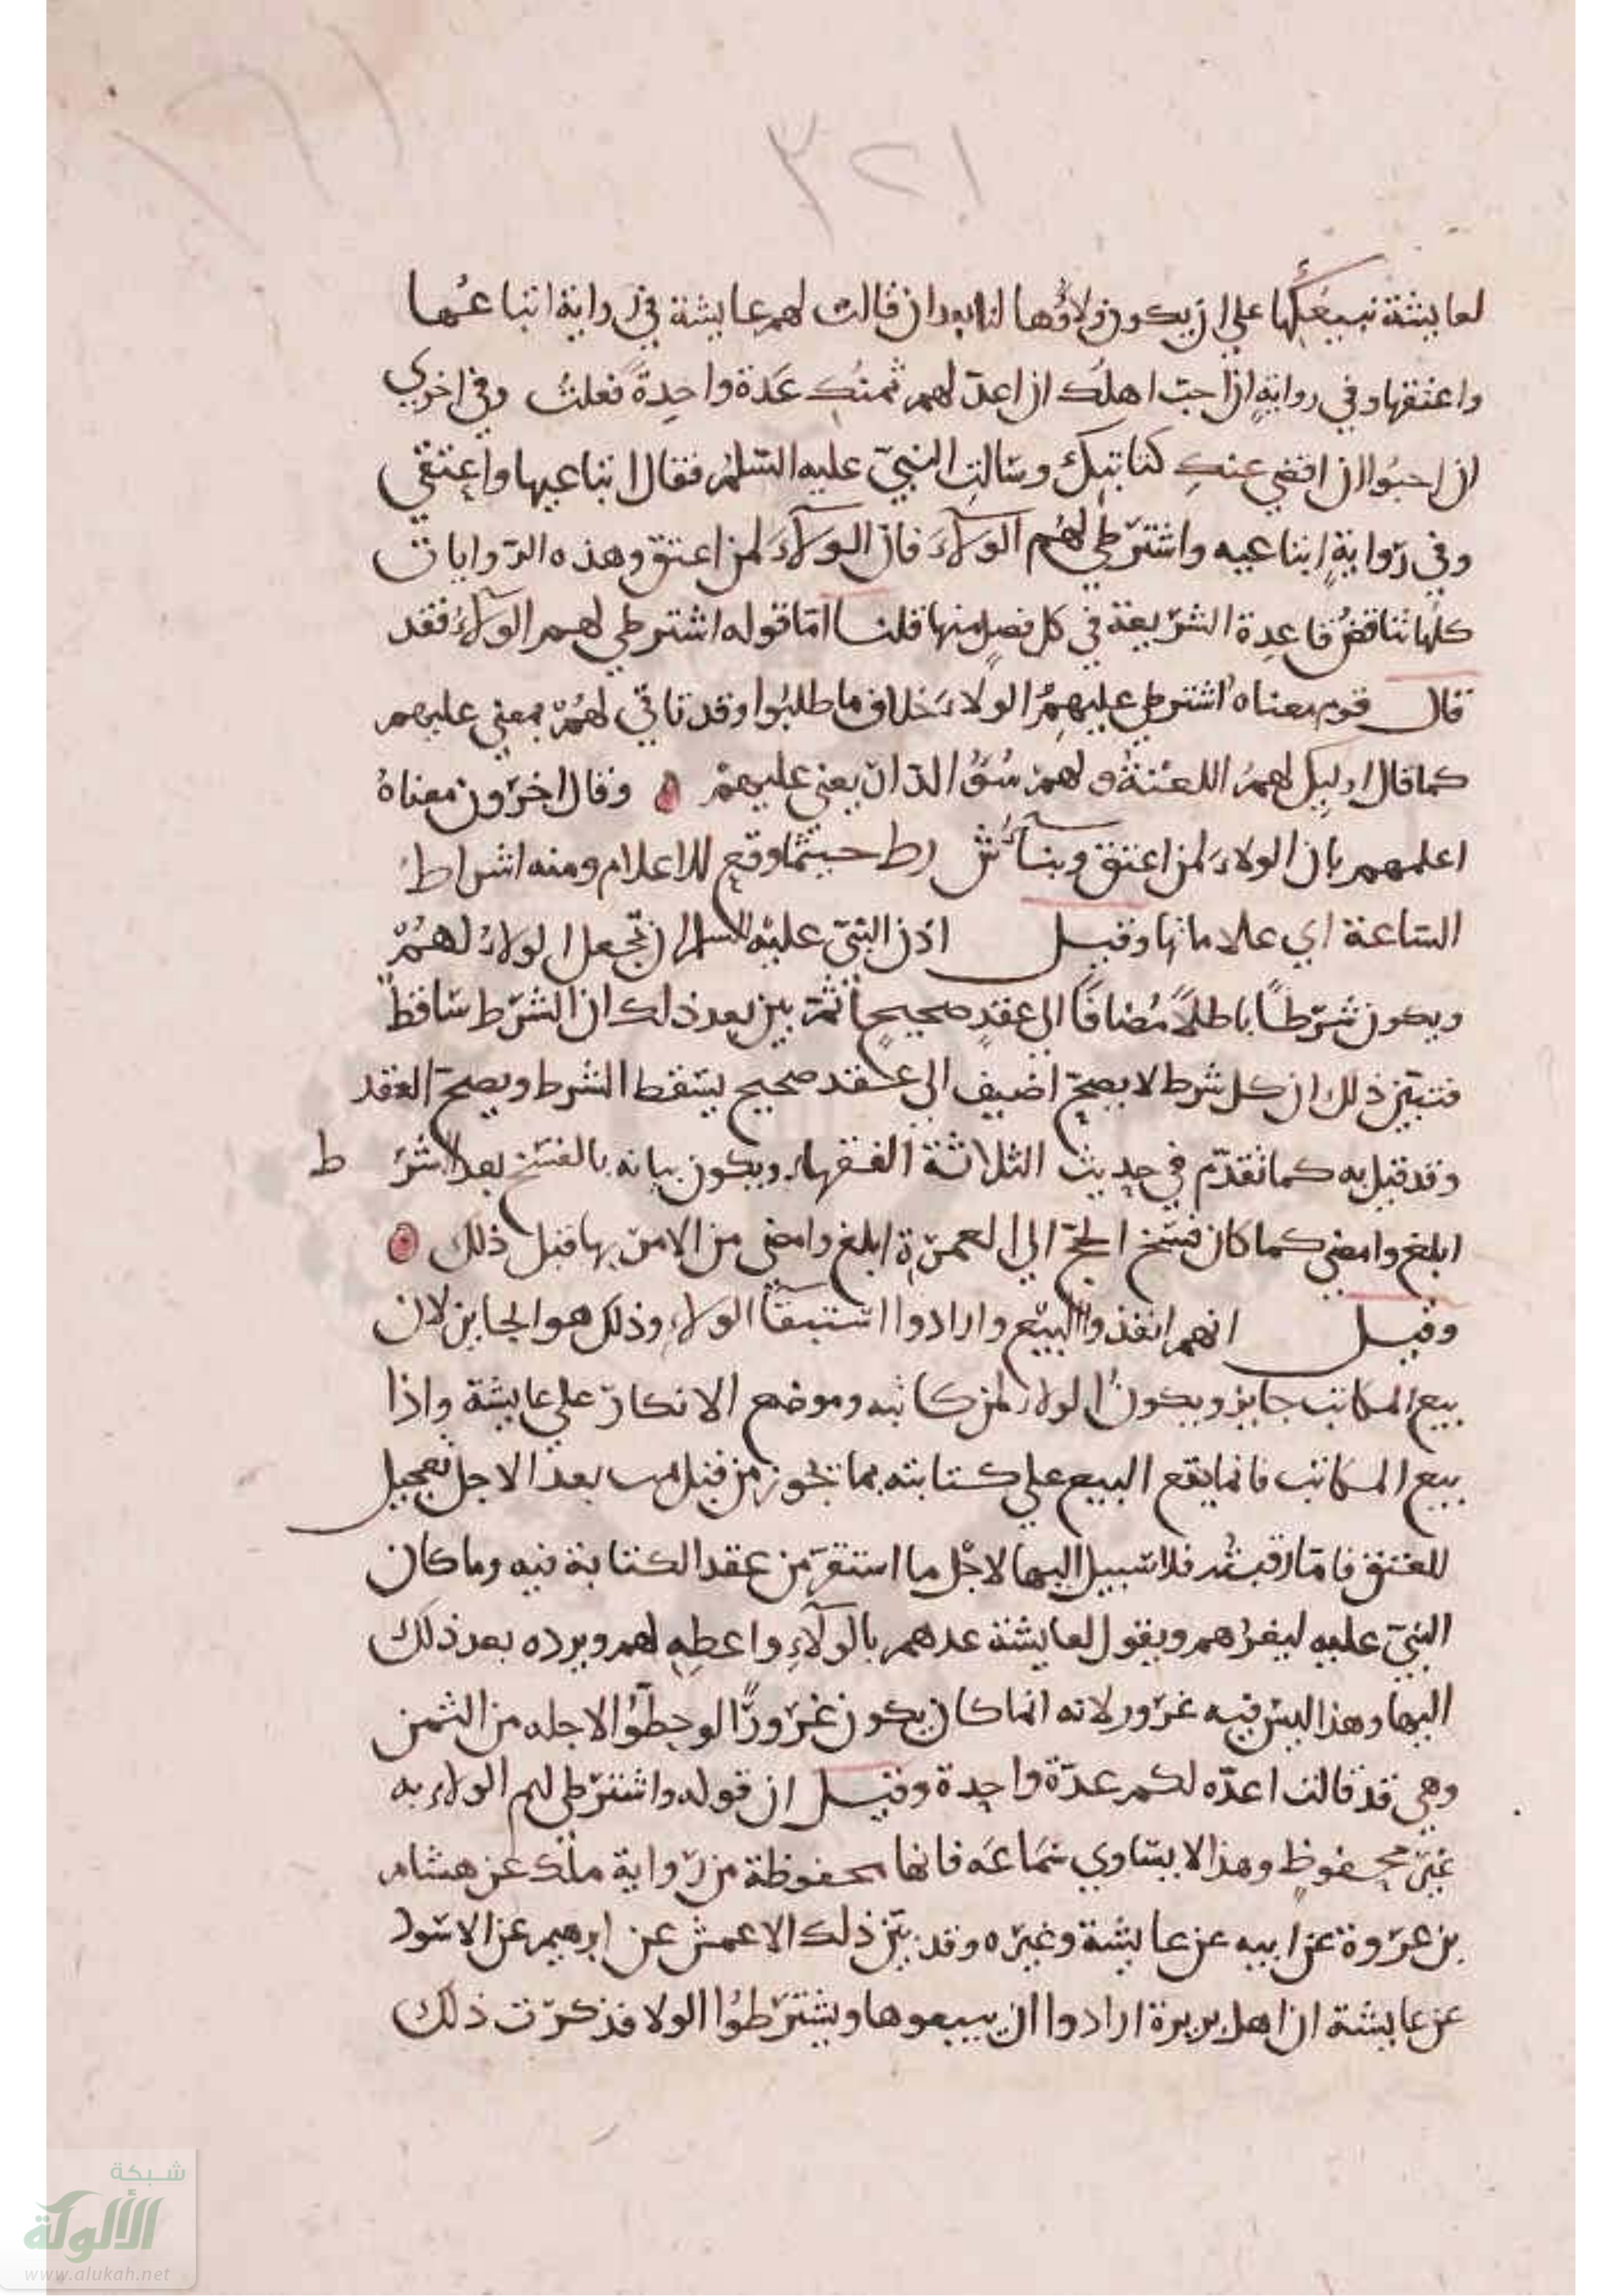 ١٢٣
لعايشة نبيعكها علي ان يكون ولاؤها لنا بعد ان قالت لهم عايشة في رواية ابتاعها
واعتقها وفي رواية ان احب اهلك ان اعد لهم ثمنك عدة واحدة فعلت وفي اخري
ان احبوا ان اقضي عنك كتابتك وسالت النبي عليه السلم فقال ابتاعيها واعتقي
وفي رواية ابتاعيه واشترطي لهم الولاء فان الولاء لمن اعتق وهذه الروايات
كلها تناقض قاعدة الشريعة في كل فصل منها قلنا اما قوله اشترطي لهم الولاء فقد
قال قوم معناه اشترطي عليهم الولاء خلاف ما طلبوا وقد تاتي لهم بمعني عليهم
كما قال اوليك لهم اللعنة ولهم سوء الدار ان يعني عليهم وقال اخرون معناه
اعلمهم بان الولاء لمن اعتق وبنا ش رط حيثما وقع للاعلام ومنه اشراط
الساعة اي علاماتها وقيل اذن النبي عليه السلام ان تجعل الولاء لهم
ويكون شرطا باطلا مضافا الي عقد صحيح ثم بين بعد ذلك ان الشرط ساقط
فتبين ذلك ان كل شرط لا يصح اضيف الي عقد صحيح يسقط الشرط ويصح العقد
وقد قيل به كما تقدم في حديث الثلاثة الفقهاء ويكون بيانه بالفسخ بعد الشر ط
ابلغ وامضي كما كان فسخ الحج الي العمرة ابلغ وامضي من الامر بها قبل ذلك
وقيل انهم انفذوا البيع وارادوا استبقا الولاء وذلك هو الجايز لان
بيع المكاتب جايز ويكون الولاء لمن كاتبه وموضع الانكار علي عايشة واذا
بيع المكاتب فانما يقع البيع علي كتابته بما تجوز من قبل بعد الاجل تعجيل
للعتق فاما رقبته فلا سبيل اليها لاجل ما استقر من عقد الكتابة فيه وما كان
النبي عليه ليغرهم ويقول لعايشة عدهم بالولاء واعطيه لهم ويرده بعد ذلك
اليها وهذا ليس فيه غرور لانه انما كان يكون غرورا لو حطوا لاجله من الثمن
وهي قد قالت اعده لكم عدة واحدة وقيل ان قوله واشترطي لهم الولاء به
غير محفوظ وهذا لا يساوي سماعه فانها محفوظة من رواية ملك عن هشام
بن عروة عن ابيه عن عايشة وغيره وقد بين ذلك الاعمش عن ابرهيم عن الاسود
عن عايشة ان اهل بريرة ارادوا ان يبيعوها ويشترطوا الولا فذكرت ذلك
شبكة
الألوكة
www.alukah.net